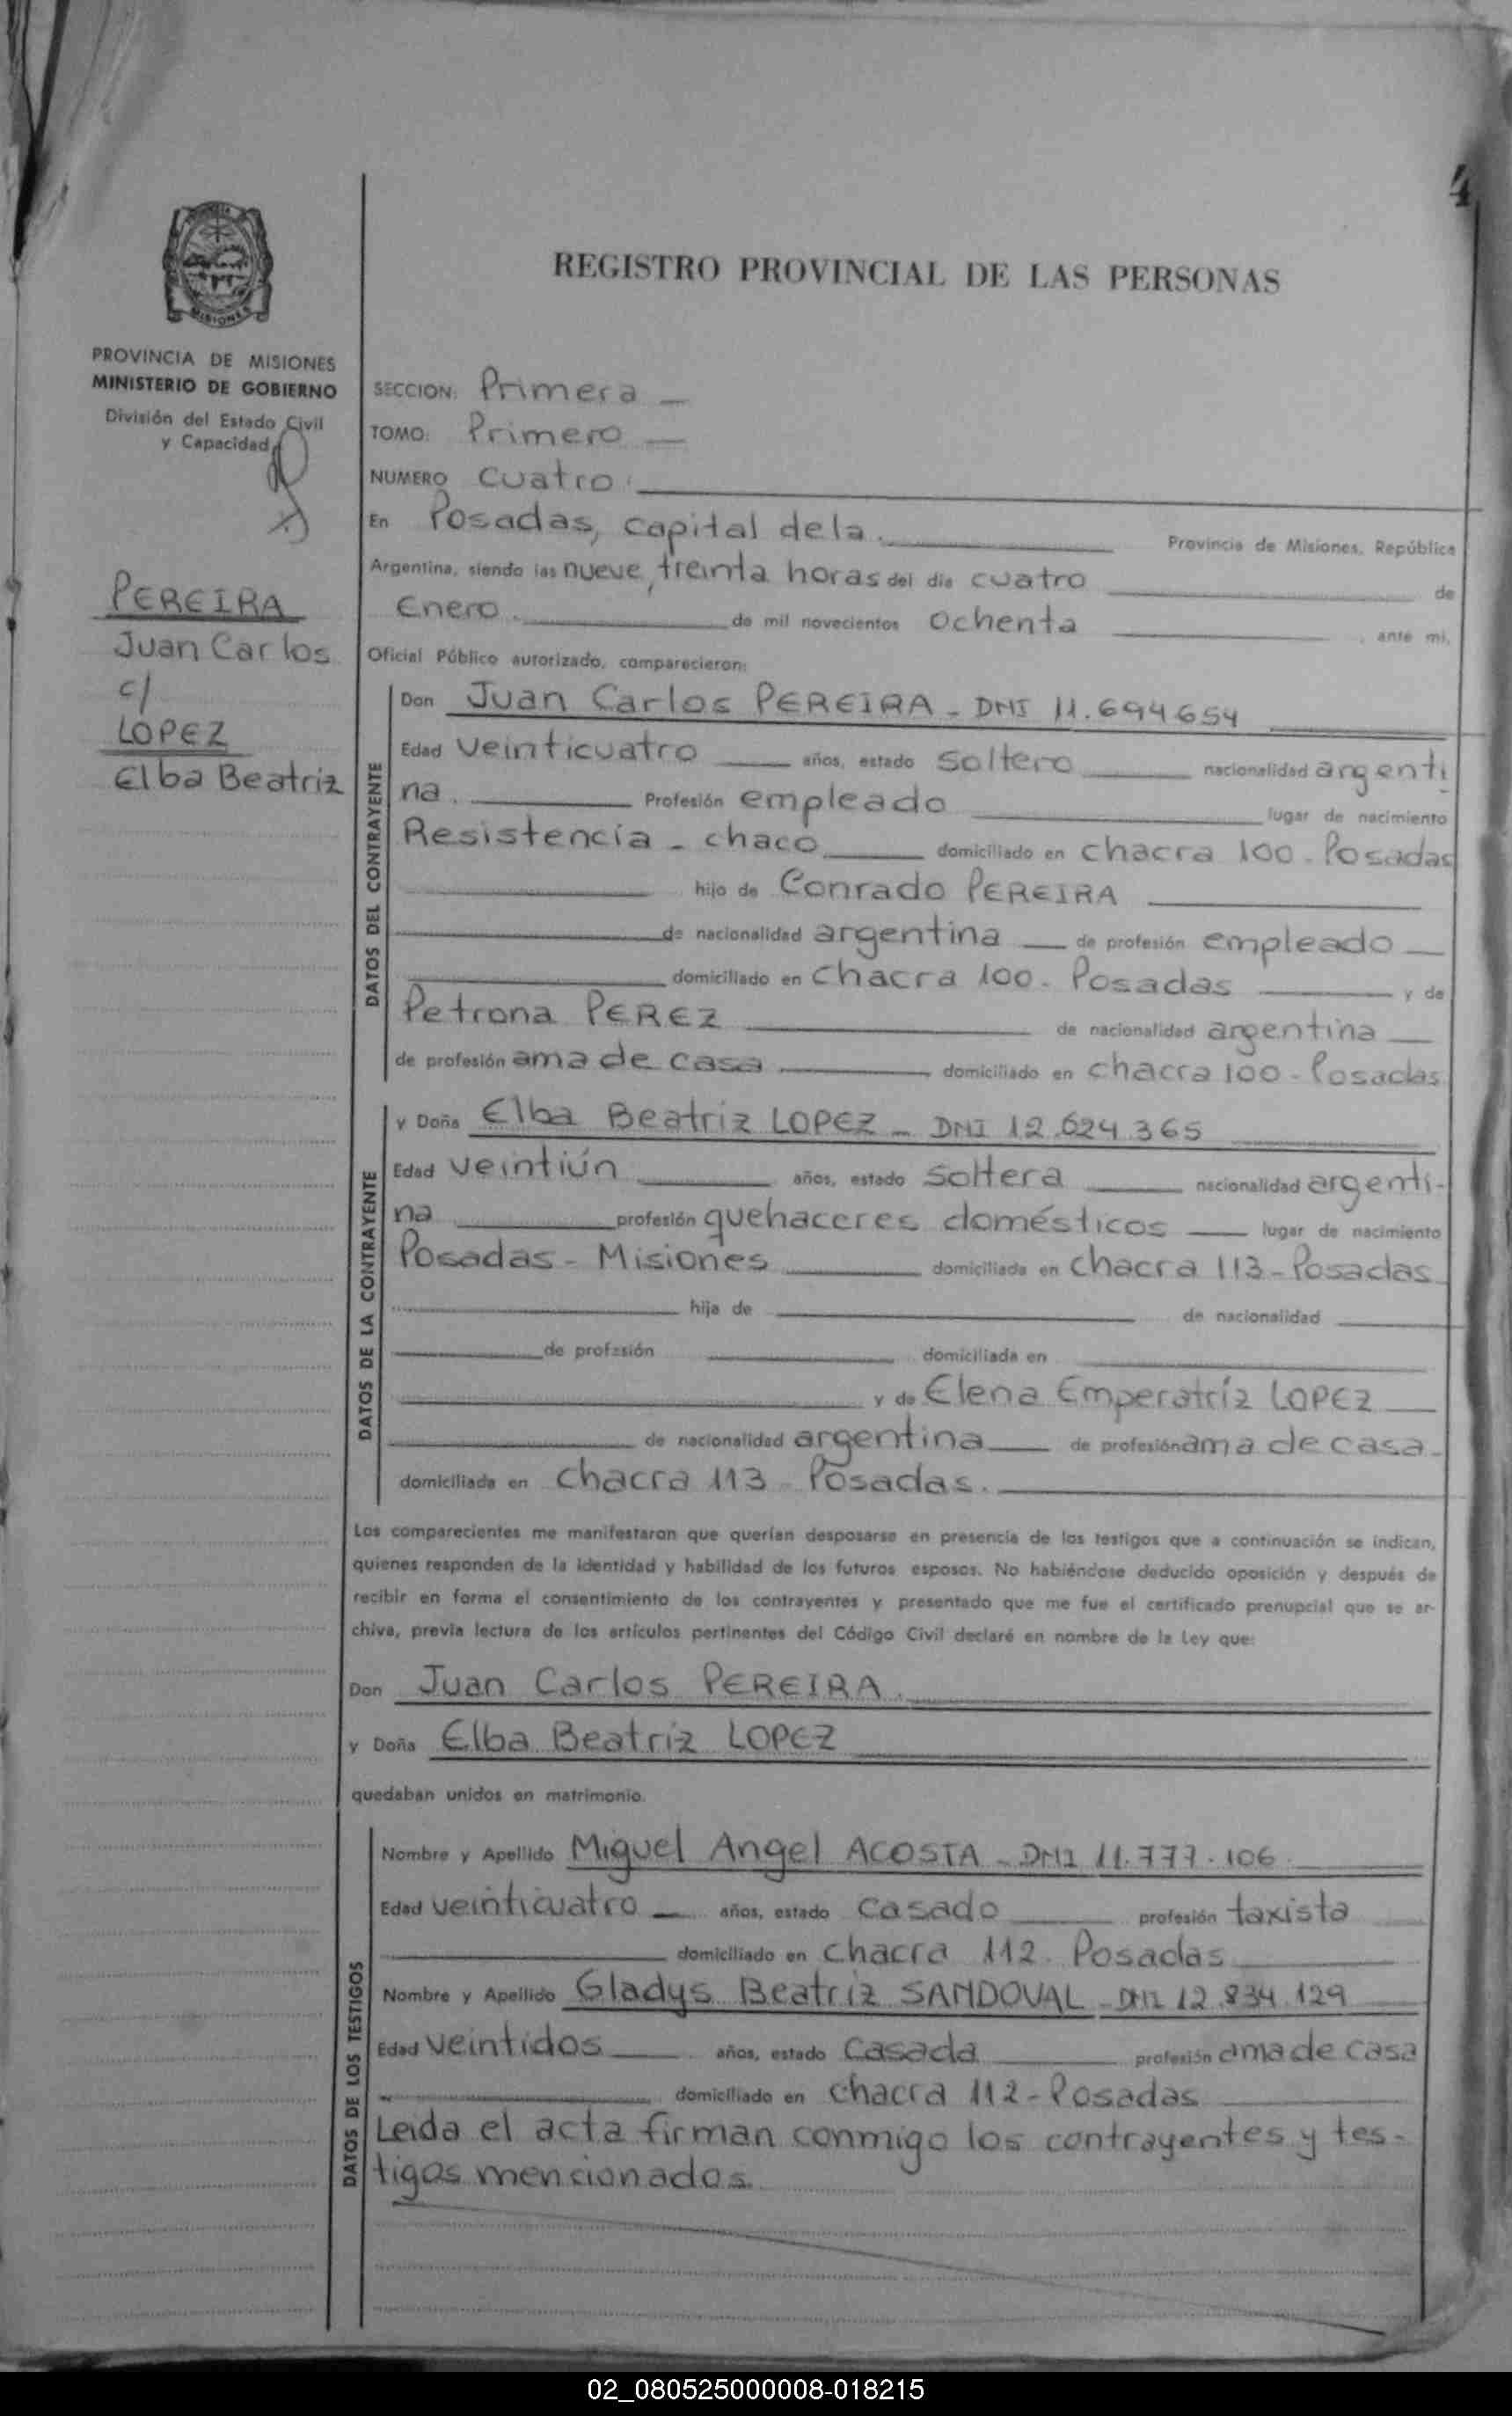 4
PROVINCIA
MISIONES
PROVINCIA DE MISIONES
MINISTERIO DE GOBIERNO
División del Estado Civil
y Capacidad
PEREIRA
Juan Carlos
c/
LOPEZ
Elba Beatriz
REGISTRO PROVINCIAL DE LAS PERSONAS
SECCION: Primera
TOMO: Primero
NUMERO Cuatro
En Posadas, capital de la Provincia de Misiones, República
Argentina, siendo las nueve, treinta horas del día cuatro de
Enero de mil novecientos Ochenta, ante mi,
Oficial Público autorizado, comparecieron:
DATOS DEL CONTRAYENTE
Don Juan Carlos PEREIRA - DNI 11.694654
Edad Veinticuatro años, estado Soltero nacionalidad argenti
na. Profesión empleado lugar de nacimiento
Resistencia - chaco domiciliado en chacra 100 - Posadas
hijo de Conrado PEREIRA
de nacionalidad argentina de profesión empleado
domiciliado en Chacra 100 - Posadas y de
Petrona PEREZ de nacionalidad argentina
de profesión ama de casa domiciliado en chacra 100 - Posadas
DATOS DE LA CONTRAYENTE
y Doña Elba Beatriz LOPEZ - DNI 12.624.365
Edad Veintiún años, estado Soltera nacionalidad argenti-
na profesión quehaceres domésticos lugar de nacimiento
Posadas - Misiones domiciliada en chacra 113 - Posadas
hija de de nacionalidad
de profesión domiciliada en
y de Elena Emperatríz LOPEZ
de nacionalidad argentina de profesión ama de casa
domiciliada en chacra 113 - Posadas.
Los comparecientes me manifestaron que querían desposarse en presencia de los testigos que a continuación se indican,
quienes responden de la identidad y habilidad de los futuros esposos. No habiéndose deducido oposición y después de
recibir en forma el consentimiento de los contrayentes y presentado que me fue el certificado prenupcial que se ar-
chiva, previa lectura de los artículos pertinentes del Código Civil declaré en nombre de la Ley que:
Don Juan Carlos PEREIRA.
y Doña Elba Beatríz LOPEZ
quedaban unidos en matrimonio.
DATOS DE LOS TESTIGOS
Nombre y Apellido Miguel Angel ACOSTA - DNI 11.777.106
Edad veinticuatro años, estado Casado profesión taxista
domiciliado en chacra 112 - Posadas
Nombre y Apellido Gladys Beatríz SANDOVAL - DNI 12.834.129
Edad Veintidos años, estado Casada profesión ama de casa
domiciliado en chacra 112 - Posadas
Leída el acta firman conmigo los contrayentes y tes-
tigos mencionados.
02_080525000008-018215